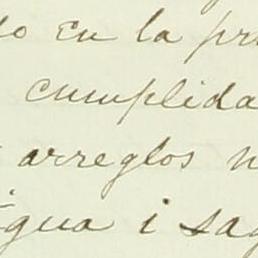 do en la pr
cumplida
arreglos n
gua i sag